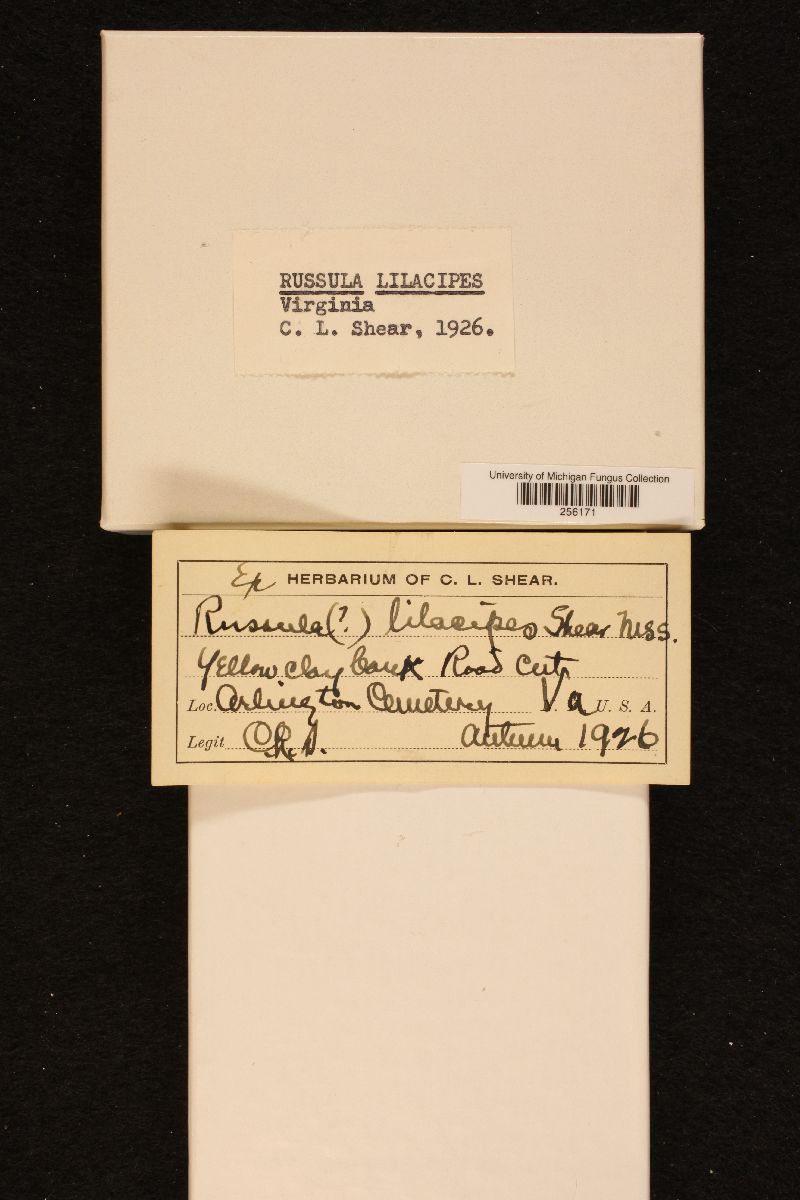 RUSSULA LILACIPES
Virginia
C. L. Shear, 1926.
University of Michigan Fungus Collection
256171
HERBARIUM OF C. L. SHEAR.
Russula (?) lilacipes Shear Mss.
Yellow clay bank Road Cut
Loc. Arlington Cemetery Va U. S. A.
Legit C.L.S. Autumn 1926